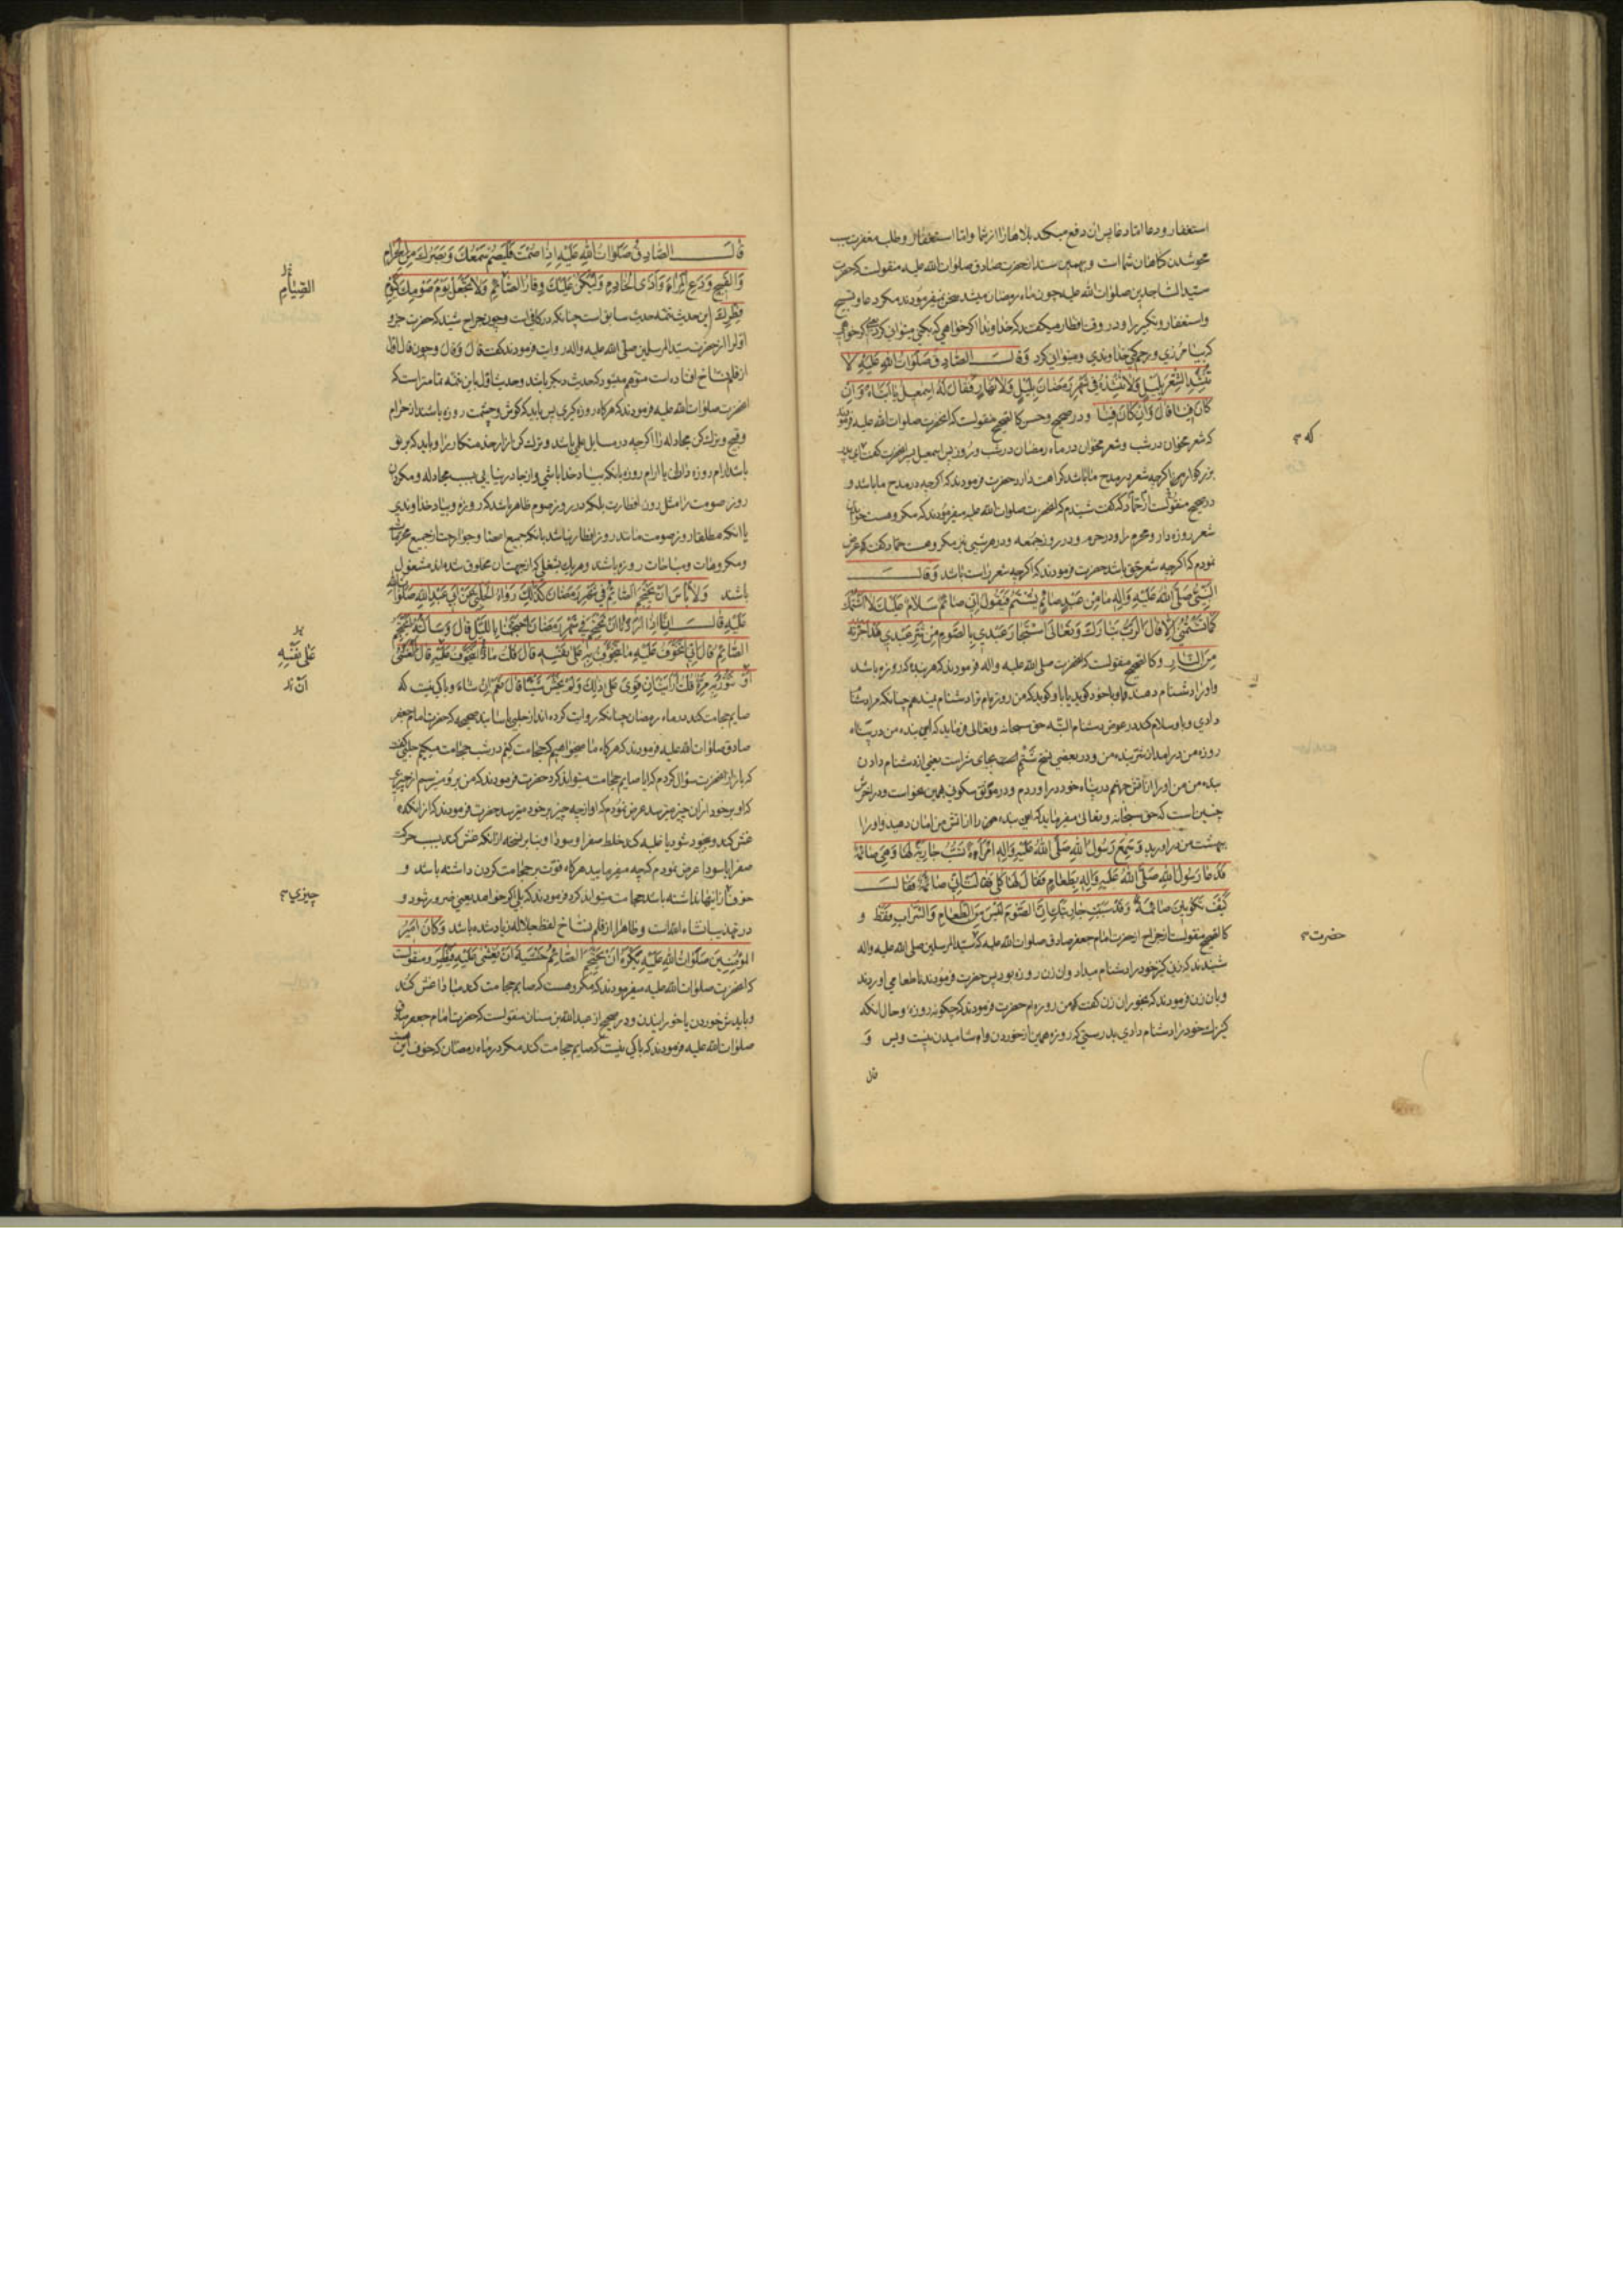 استغفار و دعا اما دعا پس ان دفع میکند بلاها را از شما و اما استغفار و طلب مغفرت سبب
محو شدن کناهان شما است و بهمین سند از حضرت صادق صلوات الله علیه منقولست که حضرت
سید الساجدین صلوات الله علیه چون ماه رمضان میشد سخن نمیفرمودند مکر دعا و تسبیح
واستغفار و تکبیر را و در وقت افطار میکفتند که خداوندا اکر خواهی که بکنی میتوانی کرد
خداوندی و میتوانی کرد وَقالَ الصّادِقُ صَلَوات اللهِ عَلَیْهِ لا
تُنْشِدِ الشِّعْرَ بِلَیْلٍ وَلا تُنْشِدْهُ فی شَهْرِ رَمَضانَ بِلَیْلٍ وَلا نَهارٍ فَقالَ لَهُ اِسْمعیلُ یا اَبَتاهُ وَاِنْ
کانَ فینا قالَ وَاِنْ کانَ فینا و در صحیح و حسن کالصحیح منقولست که انحضرت صلوات الله علیه فرمودند
که شعر مخوان در شب و شعر مخوان در ماه رمضان در شب و روز پس اسمعیل پسر انحضرت کفت که ای پدر
بزرکوار هر چند اکر چه شعر در مدح ما باشد کراهت دارد حضرت فرمودند که اکر چه در مدح ما باشد و
در صحیح منقولست از حماد که کفت شنیدم که انحضرت صلوات الله علیه میفرمودند که مکروهست خواندن
شعر روزه دار و محرم را و در حرم و در روز جمعه و در هر شبی نیز مکروهست حماد کفت که عرض
نمودم که اکر چه شعر حق باشد حضرت فرمودند که اکر چه شعر راست باشد وَقالَ
النَّبِیُّ صَلَّی اللهُ عَلَیْهِ وَالِهِ ما مِنْ عَبْدٍ صائِمٍ یُشْتَمُ فَیَقُولُ اِنّی صائِمٌ سَلامٌ عَلَیْکَ لا اَشْتِمُکَ
کَما تَشْتِمُنی اِلّا قالَ الرَّبُّ تَبارَکَ وَتَعالی اسْتَجارَ عَبْدی بِالصَّوْمِ مِنْ شَرِّ عَبْدی قَدْ اَجَرْتُهُ
مِنَ النّارِ و کالصحیح منقولست که انحضرت صلی الله علیه واله فرمودند که هر بنده که روزه باشد
و او را دشنام دهند و او با خود کوید یا باو کوید که من روزه ام ترا دشنام نمیدهم چنانکه مرا دشنام
دادی و باو سلام کند در عوض دشنام البته حق سبحانه و تعالی فرماید که این بنده من در پناه
روزه من درامد از شر بنده من و در بعضی نسخ شتم است بجای شر است یعنی از دشنام دادن
بنده من من او را از اتش جهنم در پناه خود دراوردم و در موثق سکونی بهمین عنوانست و در اخرش
چنین است که حق سبحانه و تعالی میفرماید که این بنده من را از اتش من امان دهید و او را
ببهشت من دراورید وَسَمِعَ رَسُولُ اللهِ صَلَّی اللهُ عَلَیْهِ وَالِهِ امْرَأَةً تَسُبُّ جارِیَةً لَها وَهِیَ صائِمَةٌ
فَدَعا رَسُولُ اللهِ صَلَّی اللهُ عَلَیْهِ وَالِهِ بِطَعامٍ فَقالَ لَها کُلی فَقالَتْ اِنّی صائِمَةٌ فَقالَ
کَیْفَ تَکُونینَ صائِمَةً وَقَدْ سَبَبْتِ جارِیَتَکِ اِنَّ الصَّوْمَ لَیْسَ مِنَ الطَّعامِ وَالشَّرابِ فَقَطْ و
کالصحیح منقولست از جراح از حضرت امام جعفر صادق صلوات الله علیه که سید المرسلین صلی الله علیه واله
شنیدند که زنی کنیز خود را دشنام میداد وان زن روزه بود پس حضرت فرمودند تا طعامی اوردند
و بان زن فرمودند که بخور ان زن کفت که من روزه ام حضرت فرمودند که چکونه روزه و حال انکه
کنیزک خود را دشنام دادی بدرستی که روزه همین از خوردن و اشامیدن نیست و بس و
قال
که
حضرت
قالَ الصّادِقُ صَلَواتُ اللهِ عَلَیْهِ اِذا صُمْتَ فَلْیَصُمْ سَمْعُکَ وَبَصَرُکَ مِنَ الْحَرامِ
وَالْقَبیحِ وَدَعِ الْمِراءَ وَاَذَی الْخادِمِ وَلْیَکُنْ عَلَیْکَ وَقارُ الصّائِمِ وَلا تَجْعَلْ یَوْمَ صَوْمِکَ کَیَوْمِ
فِطْرِکَ این حدیث تتمه حدیث سابق است چنانکه در کافی است و چون جراح شنید که حضرت جزو
اول را از حضرت سید المرسلین صلی الله علیه واله روایت فرمودند کفت قال وقال و چون قال اول
از قلم نساخ افتاده است متوهم میشود که حدیث دیکر باشد و حدیث اول باین تتمه تمامتر است که
انحضرت صلوات الله علیه فرمودند که هرکاه روزه کیری پس باید که کوش و چشمت روزه باشند از حرام
و قبیح و ترک کن مجادله را اکر چه در مسایل علمی باشد و ترک کن ازار خدمتکار را و باید که بر تو
باشد ارام روزه
روز صومت را مثل روز افطارت بلکه در روز صوم ظاهر باشد که روزه و بیاد خداوندی
یا انکه مطلقا روز صومت مانند روز افطار نباشد بانکه جمیع اعضا و جوارحت از جمیع محرمات
و مکروهات و مباحات روزه باشند و هر یک بشغلی که از جهت ان مخلوق شده اند مشغول
باشند وَلا بَأْسَ اَنْ یَحْتَجِمَ الصّائِمُ فی شَهْرِ رَمَضانَ کَذلِکَ رَواهُ الْحَلَبِیُّ عَنْ اَبی عَبْدِ اللهِ صَلَواتُ اللهِ
عَلَیْهِ قالَ اِنّا اِذا اَرَدْنا اَنْ نَحْتَجِمَ فی شَهْرِ رَمَضانَ احْتَجَمْنا بِاللَّیْلِ قالَ وَسَاَلْتُهُ اَیَحْتَجِمُ
الصّائِمُ قالَ اِنّی اَتَخَوَّفُ عَلَیْهِ ما یَتَخَوَّفُ بِهِ عَلی نَفْسِهِ قالَ قُلْتُ ماذا تَتَخَوَّفُ عَلَیْهِ قالَ الْغَشْیَ
اَوْ تَثُورُ بِهِ مِرَّةٌ قُلْتُ اَرَاَیْتَ اِنْ قَوِیَ عَلی ذلِکَ وَلَمْ یَخْشَ شَیْئًا قالَ نَعَمْ اِنْ شاءَ و باکی نیست که
صایم حجامت کند در ماه رمضان چنانکه روایت کرده اند از حلبی باسانید صحیحه که حضرت امام جعفر
صادق صلوات الله علیه فرمودند که هرکاه ما میخواهیم که حجامت کنیم در شب حجامت میکنیم حلبی کفت
که باز از انحضرت سؤال کردم که ایا صایم حجامت میتواند کرد حضرت فرمودند که من بر او میترسم از چیزی
که او بر خود از ان چیز میترسد عرض نمودم که او از چه چیز بر خود میترسد حضرت فرمودند که از انکه
غش کند و بیخود شود یا غلبه کند خلط صفرا و سودا و بنابر نسخه از انکه غش کند بسبب حرکت
صفرا یا سودا عرض نمودم که چه میفرمایید هرکاه قوت بر حجامت کردن داشته باشد و
خوف از اینها نداشته باشد حجامت میتواند کرد فرمودند که بلی اکر خواهد یعنی ضرور شود و
در تهذیب ان شاء الله است و ظاهرا از قلم نساخ لفظ جلاله زیاد شده باشد وَکانَ اَمیرُ
الْمُؤْمِنینَ صَلَواتُ اللهِ عَلَیْهِ یَکْرَهُ اَنْ یَحْتَجِمَ الصّائِمُ خَشْیَةَ اَنْ یُغْشی عَلَیْهِ فَیُفْطِرَ و منقولست
که انحضرت صلوات الله علیه میفرمودند که مکروهست که صایم حجامت کند مبادا غش کند
و بایدش خوردن یا خورانیدن و در صحیح از عبدالله بن سنان منقولست که حضرت امام جعفر صادق
صلوات الله علیه فرمودند که باکی نیست که صایم حجامت کند مکر در ماه رمضان که خوف این
الصِّیامِ
عَلی نَفْسِهِ
اَنْ
چیزی